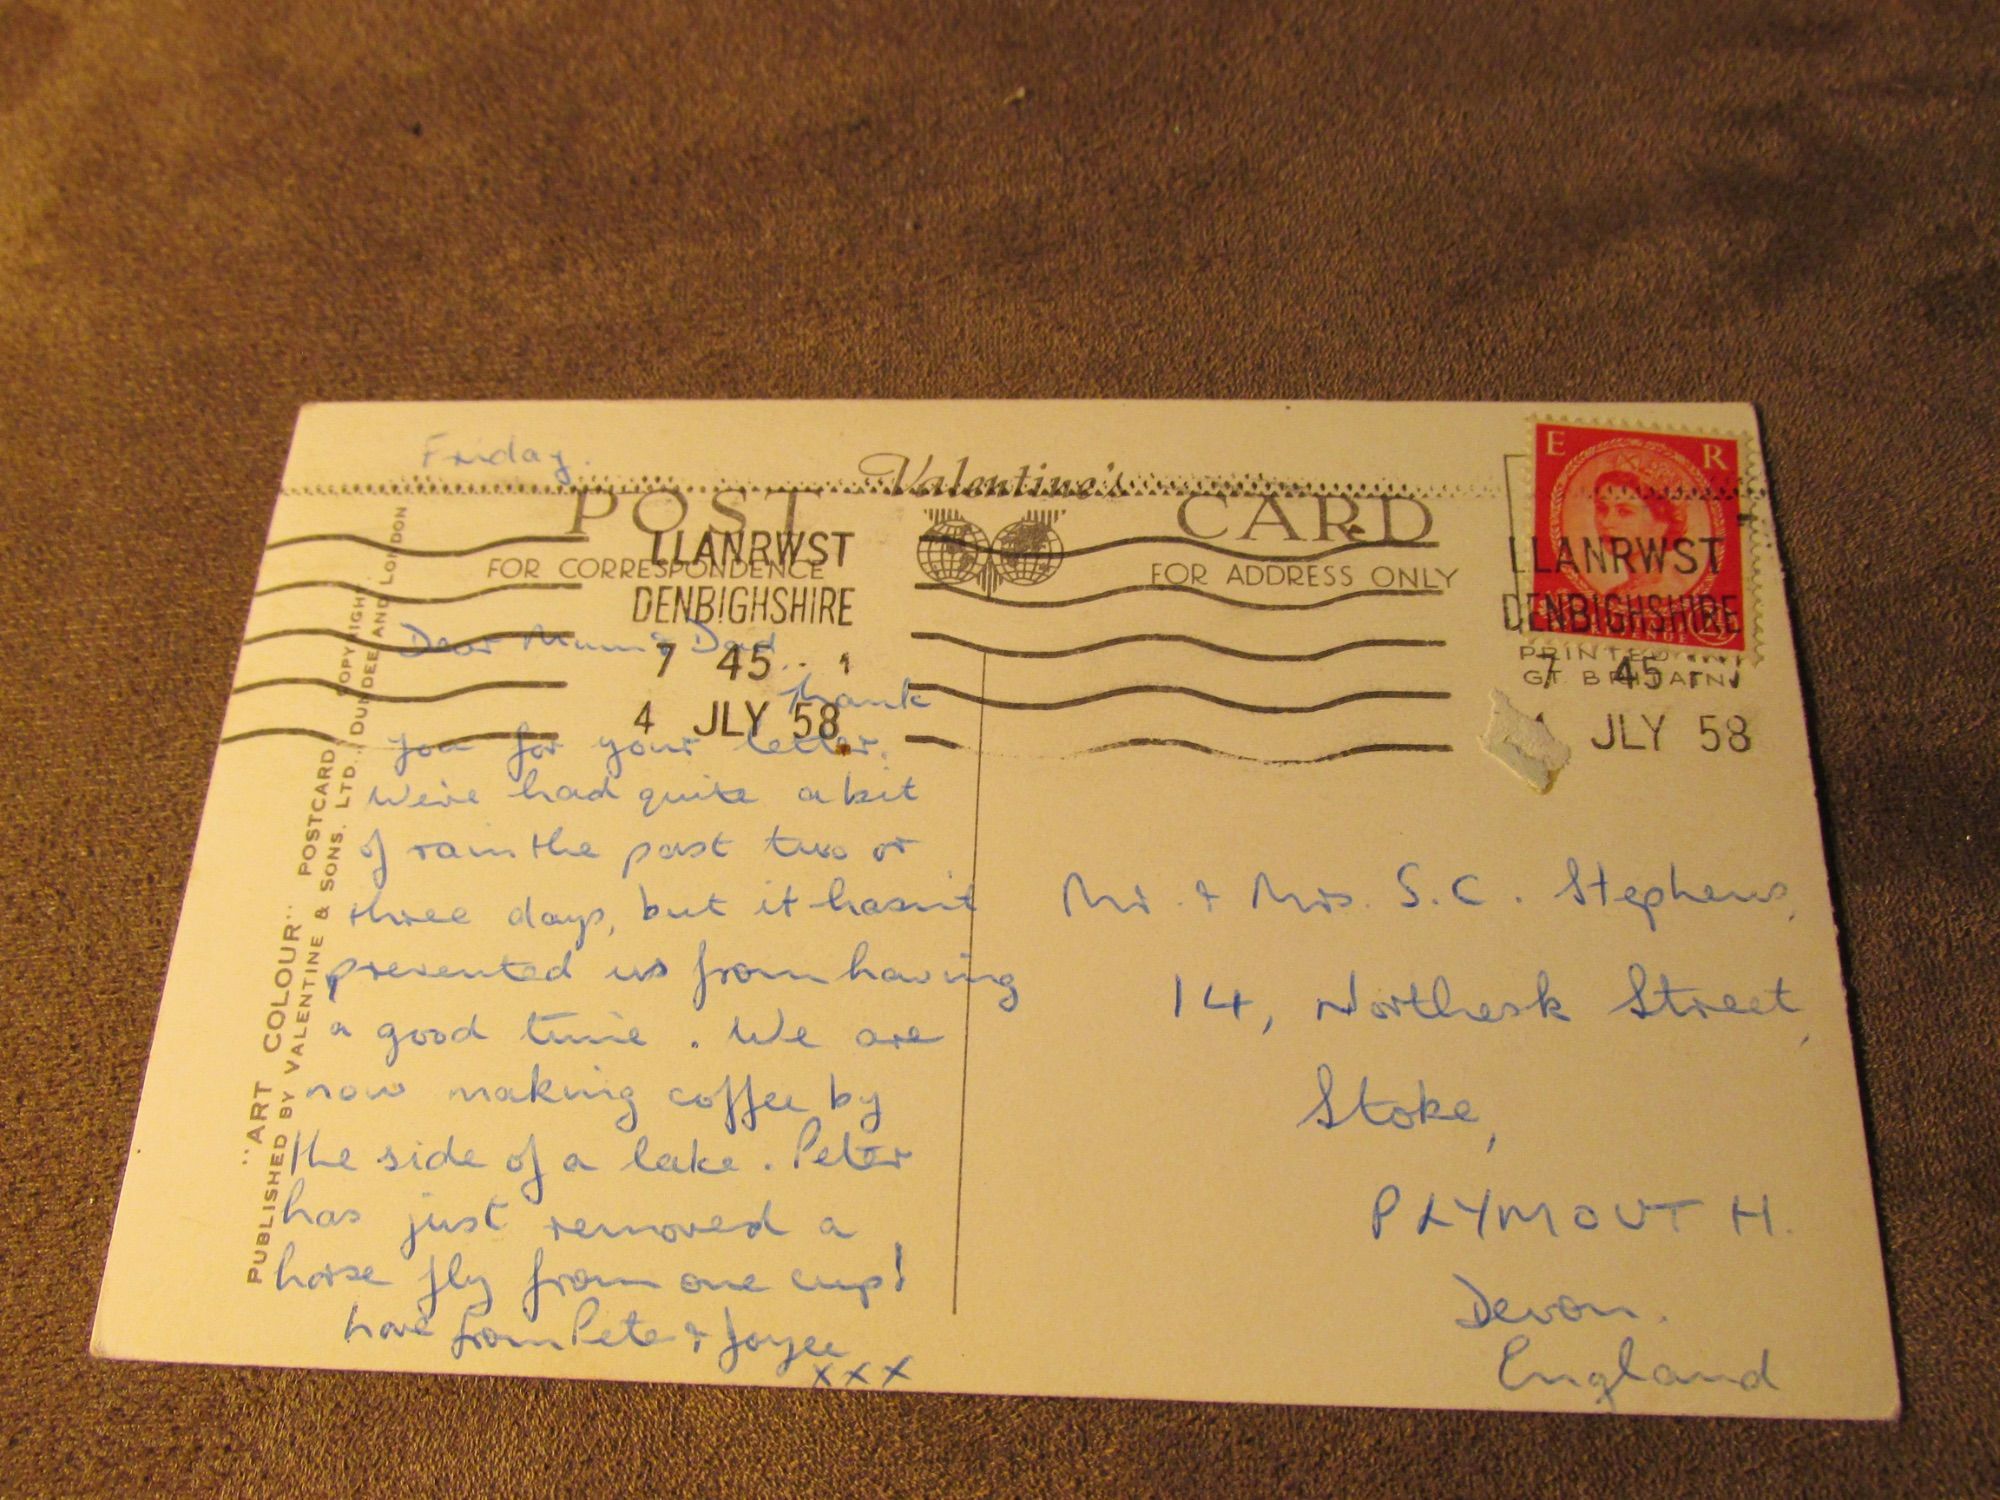 Friday.
Valentine's
POST CARD
FOR CORRESPONDENCE
FOR ADDRESS ONLY
LLANRWST
DENBIGHSHIRE
7 45
4 JLY 58
E R
LLANRWST
DENBIGHSHIRE
7 45
JLY 58
PRINTED IN
GT. BRITAIN
"ART COLOUR" POSTCARD
COPYRIGHT
PUBLISHED BY VALENTINE & SONS, LTD., DUNDEE AND LONDON
Dear Mum & Dad
Thank
you for your letter.
We've had quite a bit
of rain the past two or
three days, but it hasn't
prevented us from having
a good time. We are
now making coffee by
the side of a lake. Peter
has just removed a
horse fly from one cup!
Love from Pete & Joyce
xxx
Mr. & Mrs. S.C. Stephens,
14, Northesk Street,
Stoke,
PLYMOUTH.
Devon.
England